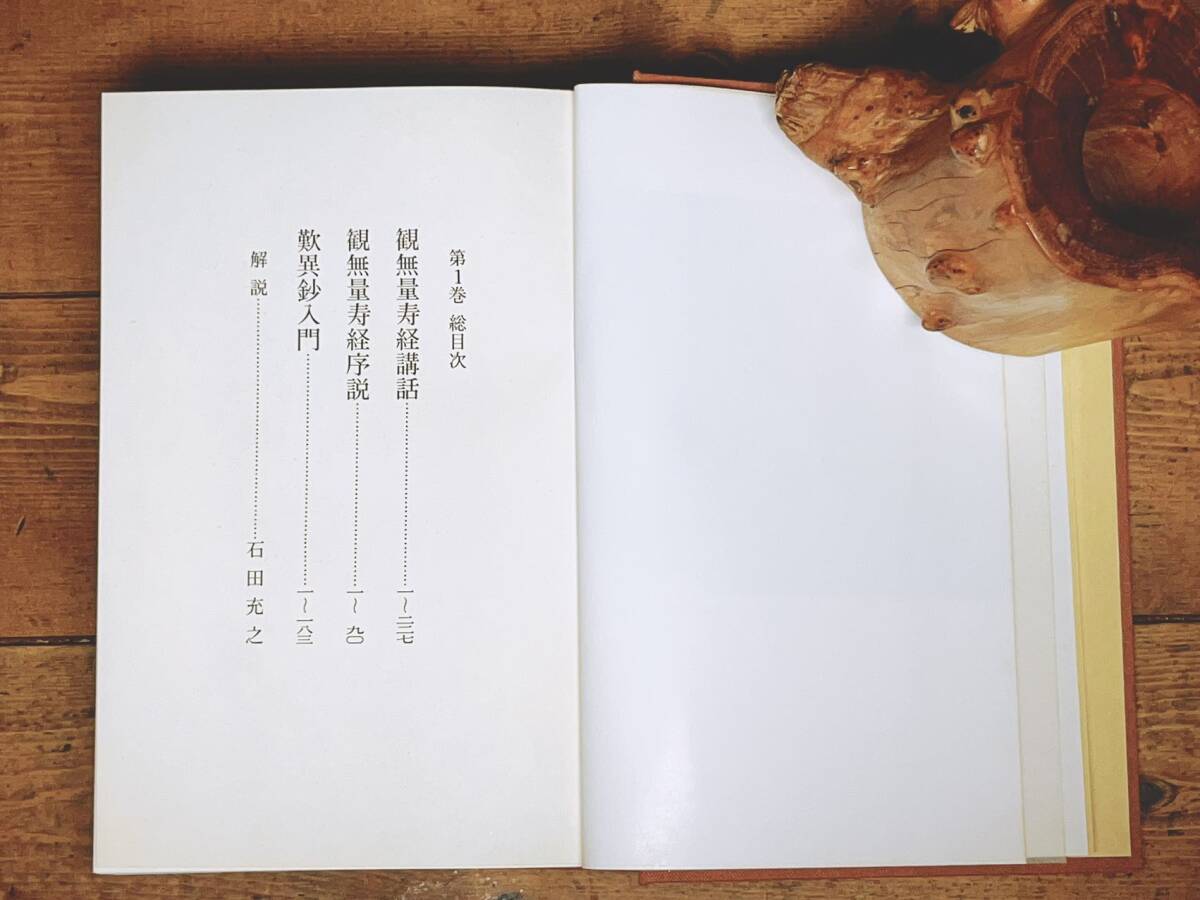 第1巻 総目次
観無量寿経講話……一〜二二七
観無量寿経序説……一〜九〇
歎異鈔入門……一〜一八三
解説……石田充之